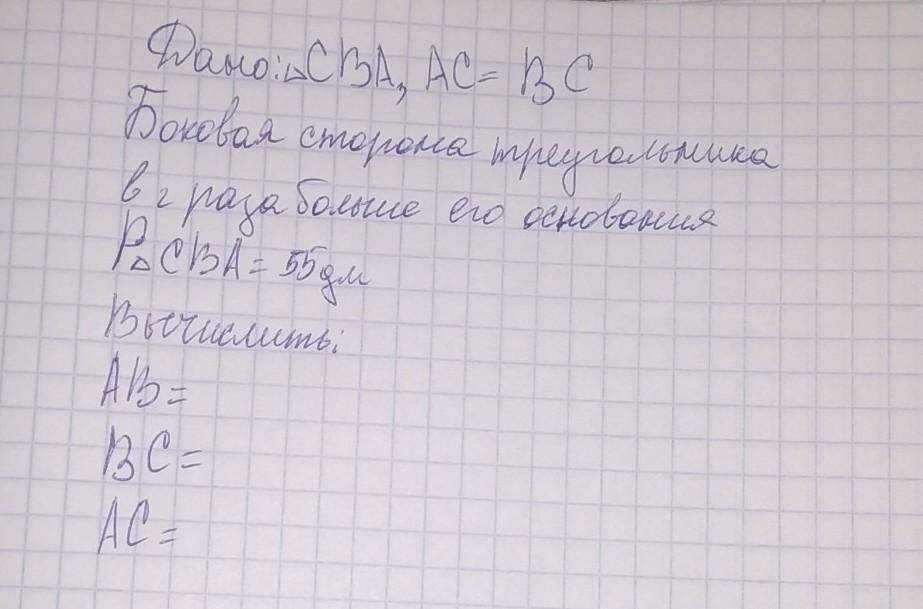 Дано: △CBA, AC = BC
Боковая сторона треугольника
в 2 раза больше его основания
P△CBA = 55дм
Вычислить:
AB =
BC =
AC =